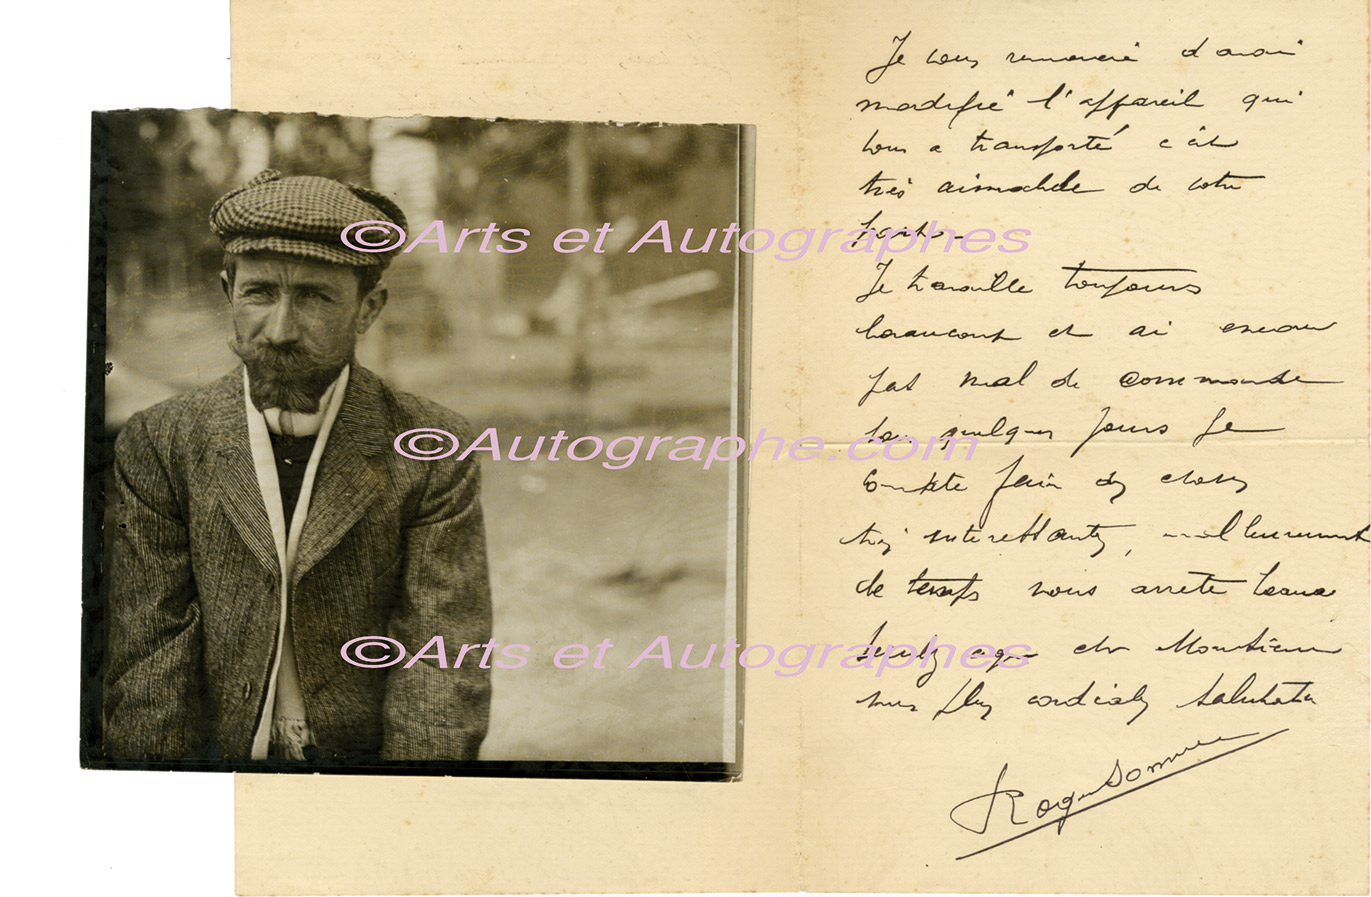 Je vous remercie d'avoir
modifié l'appareil qui
vous a transporté c'est
très aimable de votre
part.
©Arts et Autographes
Je travaille toujours
beaucoup et ai encore
pas mal de commande
quelques jours je
compte faire des choses
très interessantes, malheureusement
le temps nous arrete beaucoup
©Autographe.com
cher Monsieur
mes plus cordiales salutations
©Arts et Autographes
Roger Sommer